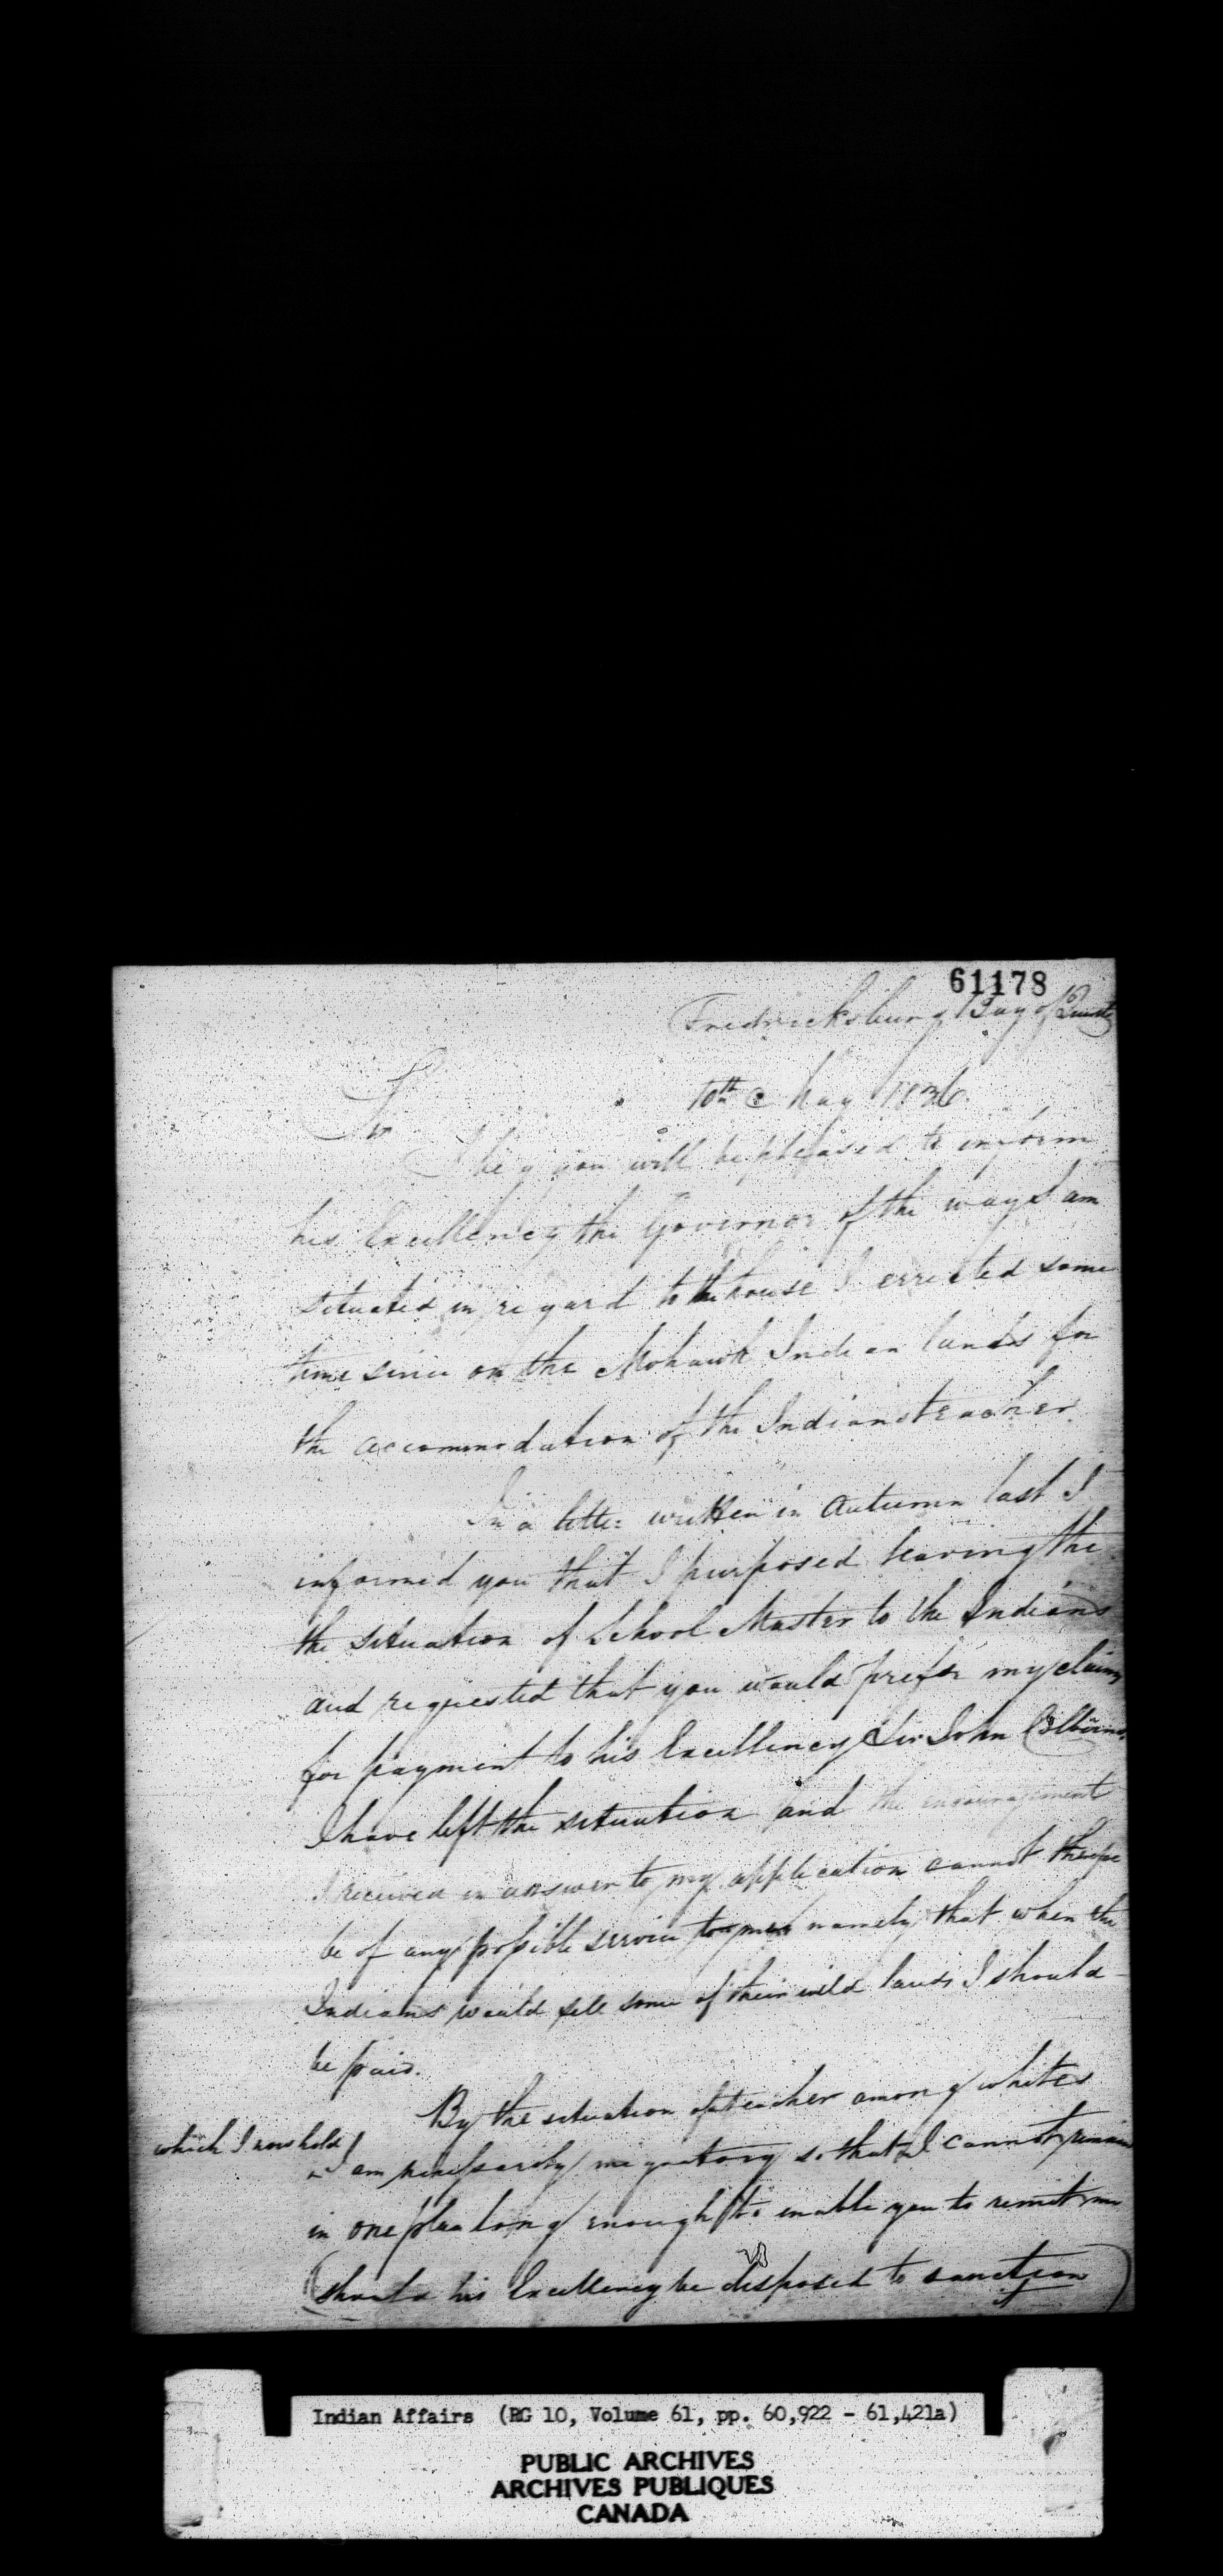 61178
Fredricksburg Bay of Quinte
10th May 1836
Sir
I beg you will be pleased to inform
his Excellency the Governor of the way I am
situated in regard to the house I errected some
time since on the Mohawk Indian lands for
the accommodation of the Indians teacher.
In a letter written in Autumn last I
informed you that I purposed leaving the
the situation of School Master to the Indians
and requested that you would prefer my claim
for payment to his Excellency Sir John Colborne.
I have left the situation and the encouragement
I received in answer to my application cannot therefore
be of any possible service to me namely that when the
Indians would sell some of their wild lands I should
be paid.
By the situation of teacher among whites
which I now hold
I am necessarily migratory so that I cannot remain
in one place long enough to enable you to remit me
(should his Excellency be disposed to sanction
it)
Indian Affairs (RG 10, Volume 61, pp. 60,922 - 61,421a)
PUBLIC ARCHIVES
ARCHIVES PUBLIQUES
CANADA